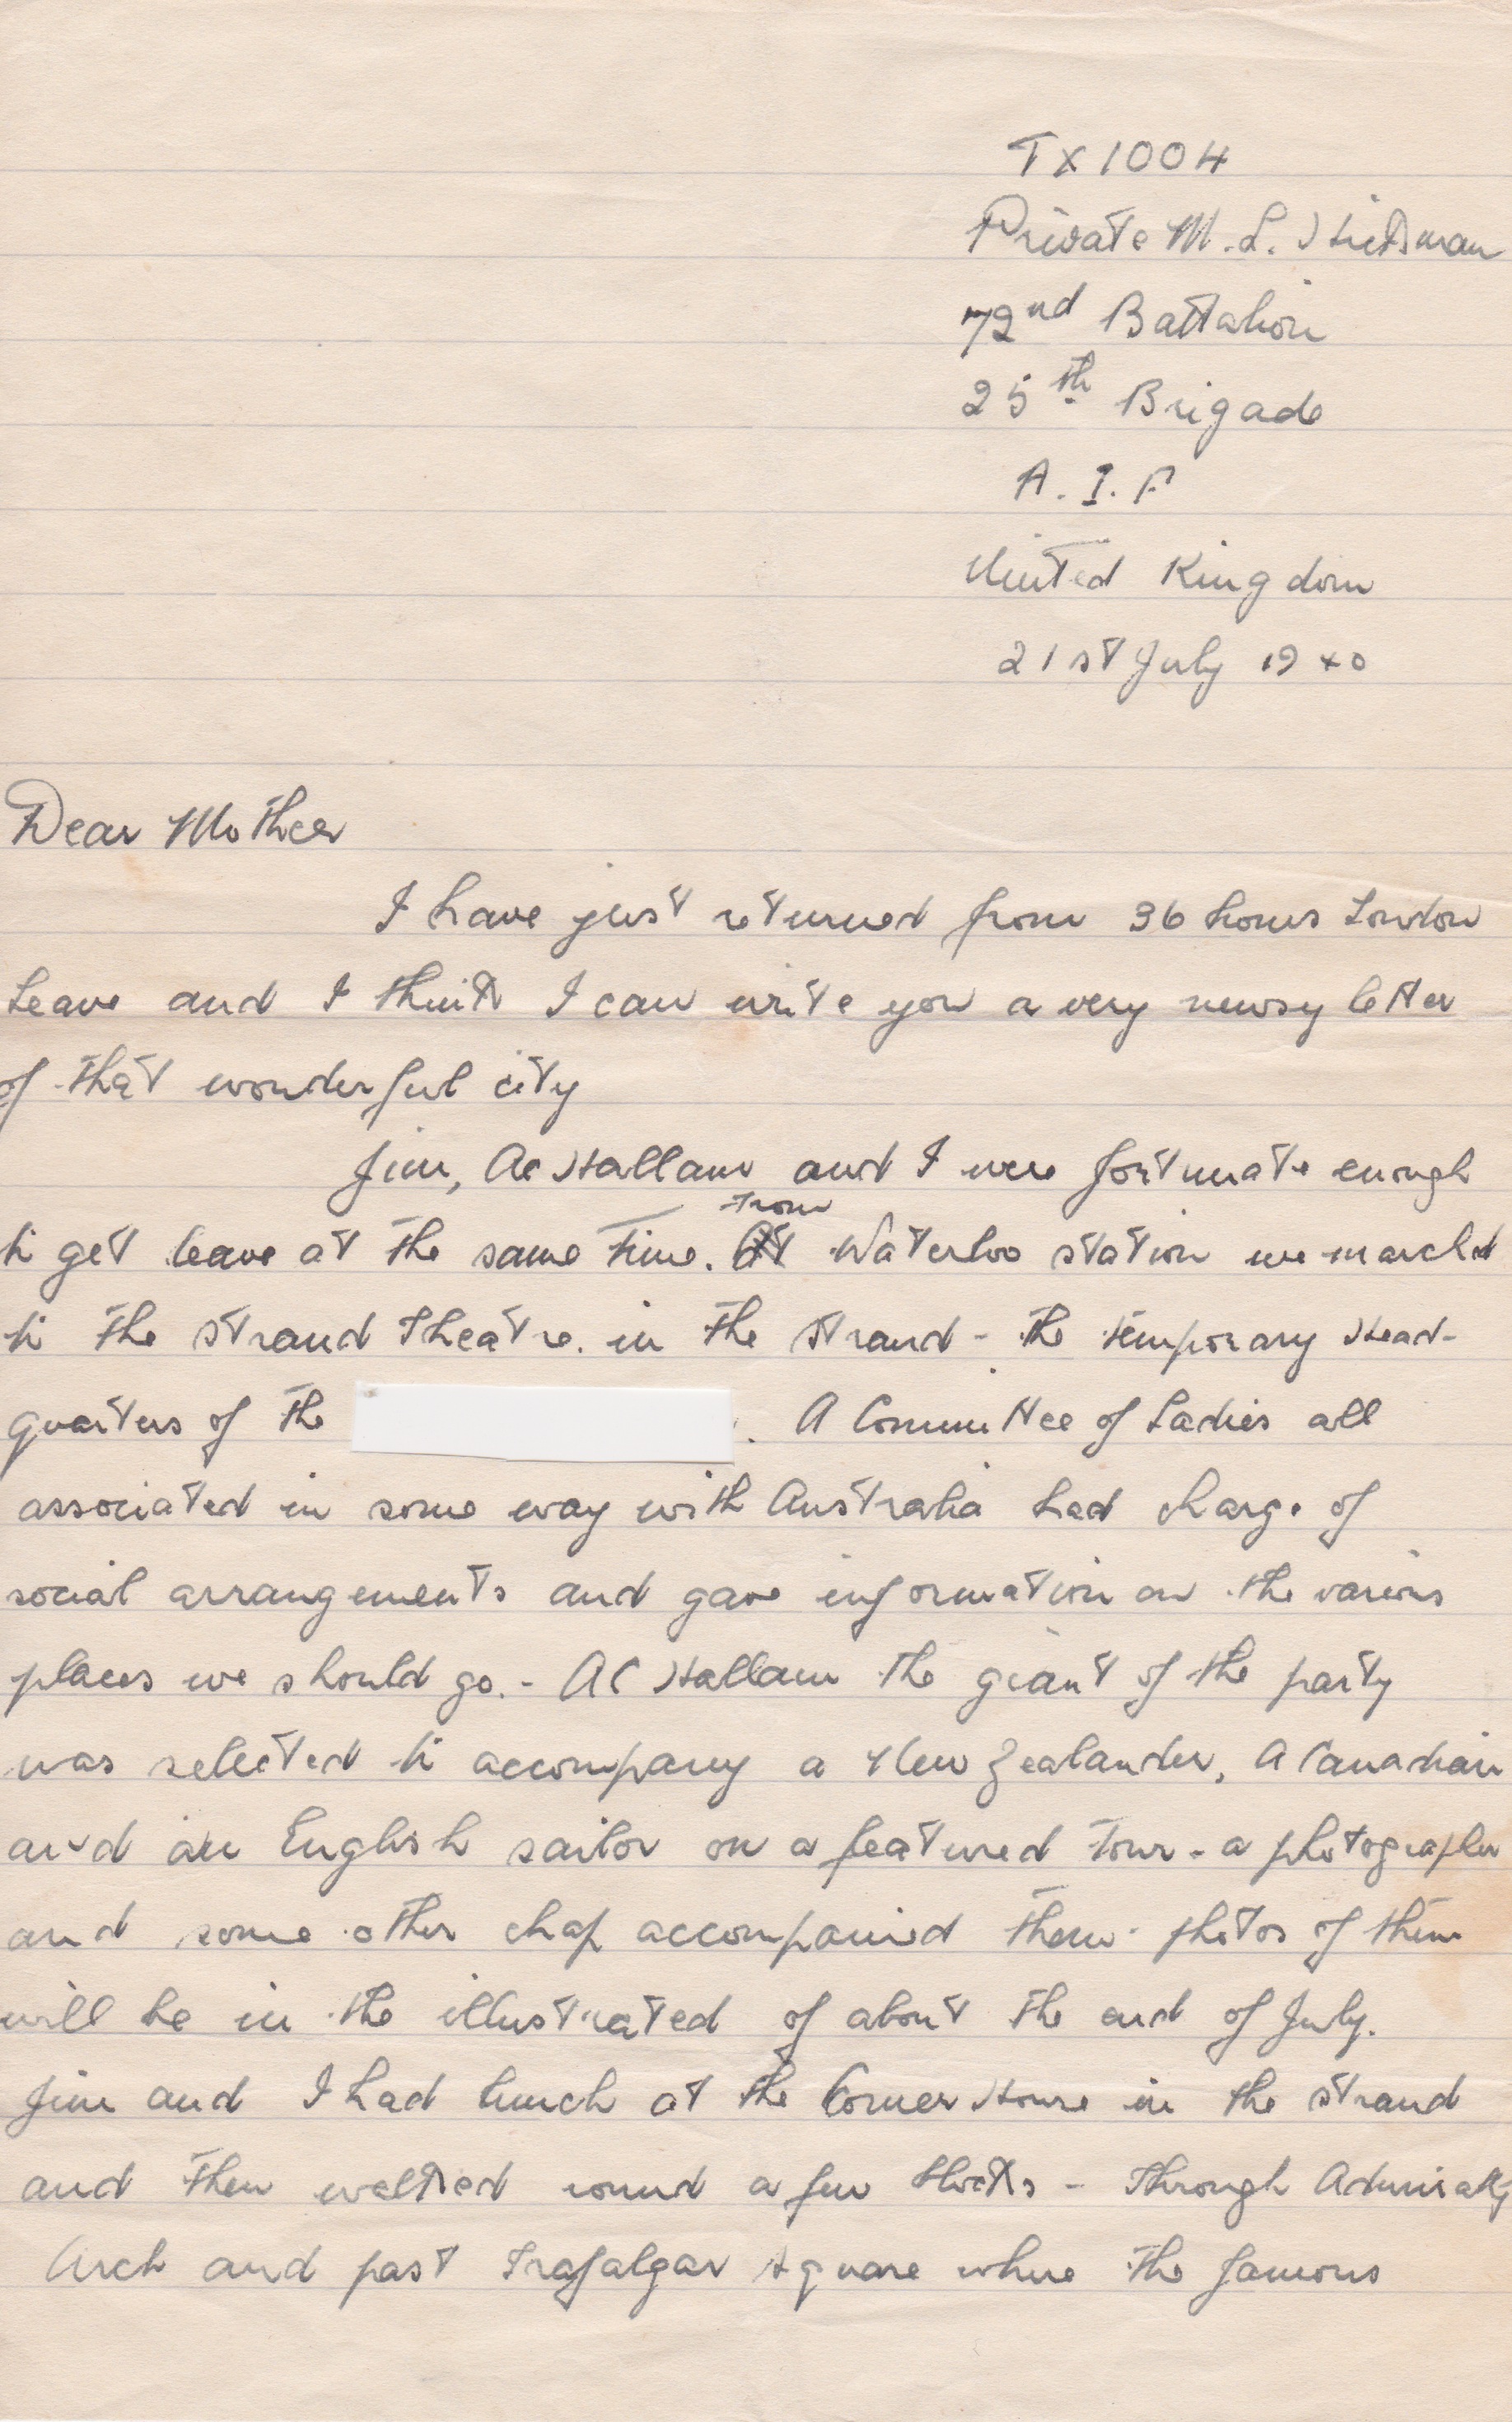 TX1004
Private M. L. Hickman
72nd Battalion
25th Brigade
A. I. F
United Kingdom
21st July 1940
Dear Mother
I have just returned from 36 hours London
Leave and I think I can write you a very newsy letter
of that wonderful city
Jim, Ac Hallam and I were fortunate enough
to get leave at the same time. From Waterloo station we marched
to the Strand Theatre. in the Strand - the temporary Head-
quarters of the . A Committee of Ladies all
associated in some way with Australia had charge of
social arrangements and gave information on the various
places we should go. - AC Hallam the giant of the party
was selected to accompany a New Zealander, A Canadian
and an English sailor on a featured Tour - a photographer
and some other chap accompanied them - photos of them
will be in the illustrated of about the end of July.
Jim and I had lunch at the Corner House in the Strand
and then walked round a few - Through Admiralty
Arch and past Trafalgar Square where the famous